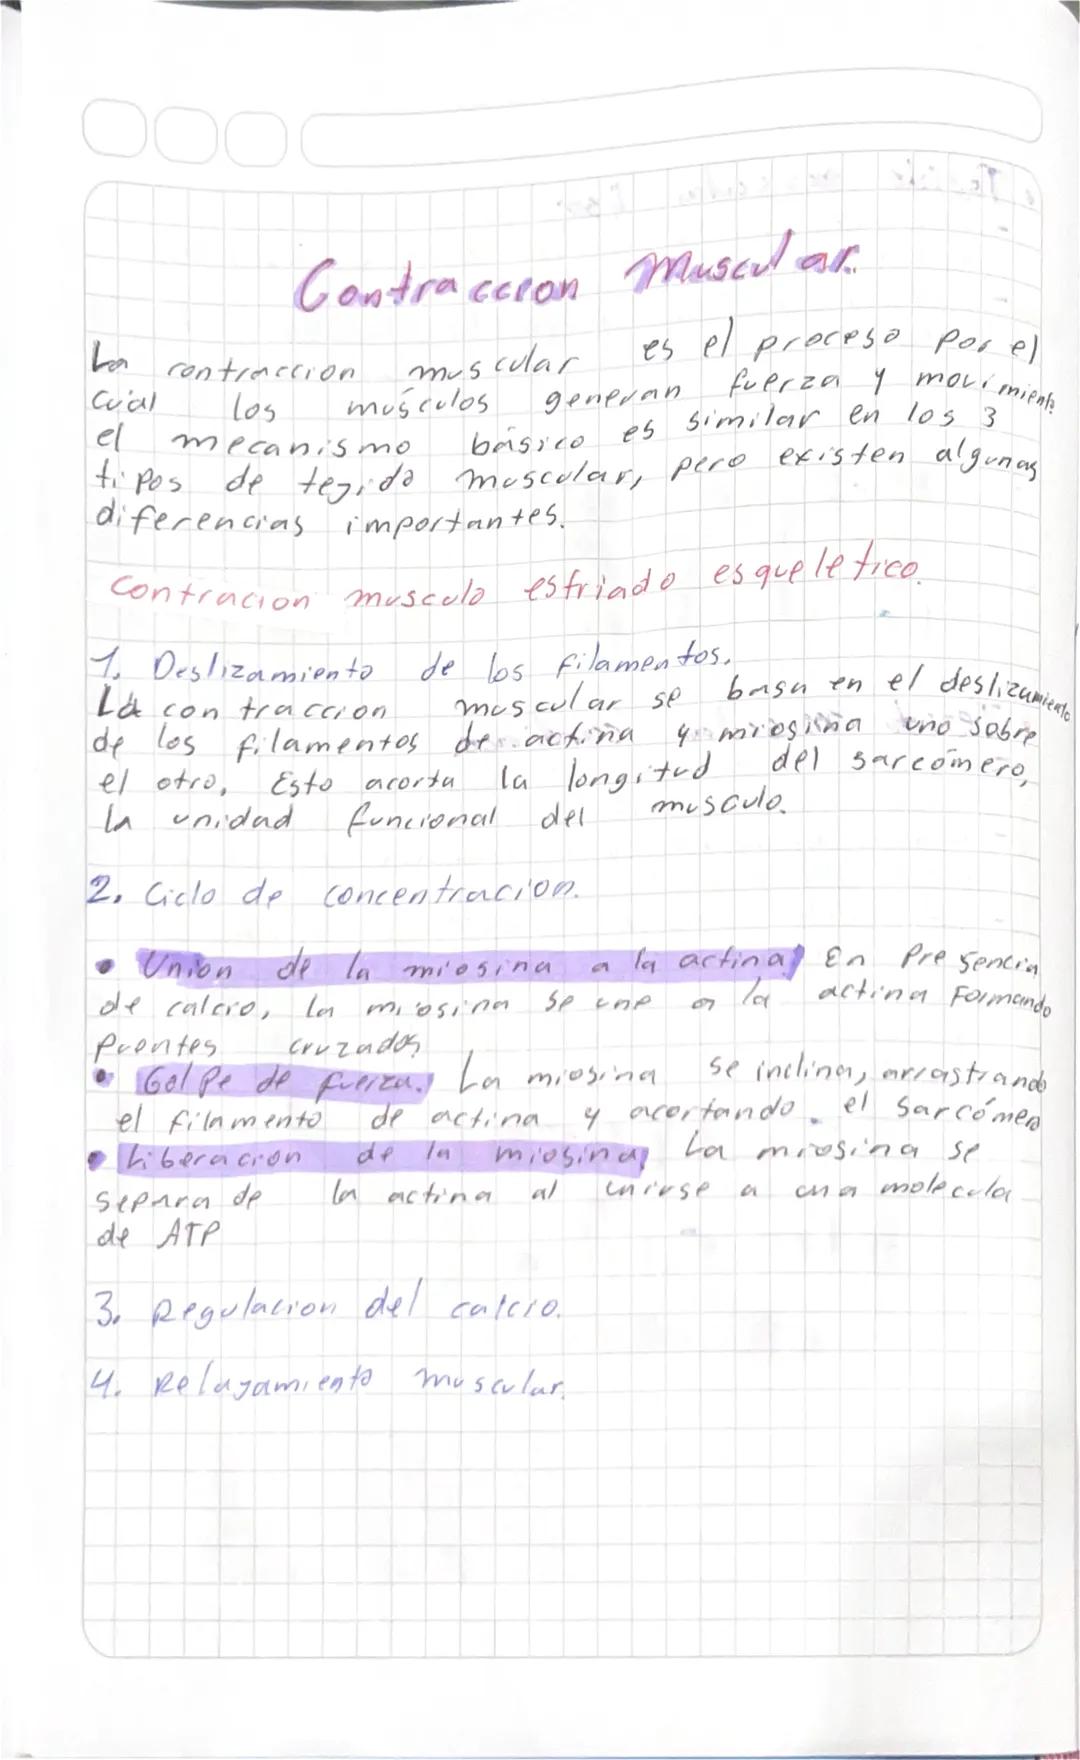 Contraccion Muscular.
La contraccion muscular es el proceso por el
cual los músculos generan fuerza y movimiento
el mecanismo básico es similar en los 3
tipos de tejido muscular, pero existen algunas
diferencias importantes.
Contracion musculo estriado esqueletico.
1. Deslizamiento de los filamentos.
La contraccion muscular se basa en el deslizamiento
de los filamentos de actina y miosina uno sobre
el otro, Esto acorta la longitud del sarcómero,
la unidad funcional del musculo.
2. Ciclo de concentracion.
• Union de la miosina a la actina) En Presencia
de calcio, la miosina se une a la actina Formando
Puentes cruzados
• Golpe de fuerza. La miosina se inclina, arrastrando
el filamento de actina y acortando el sarcómero
• Liberacion de la miosina, La miosina se
separa de la actina al unirse a una molecula
de ATP
3. Regulacion del calcio.
4. Relajamiento muscular.